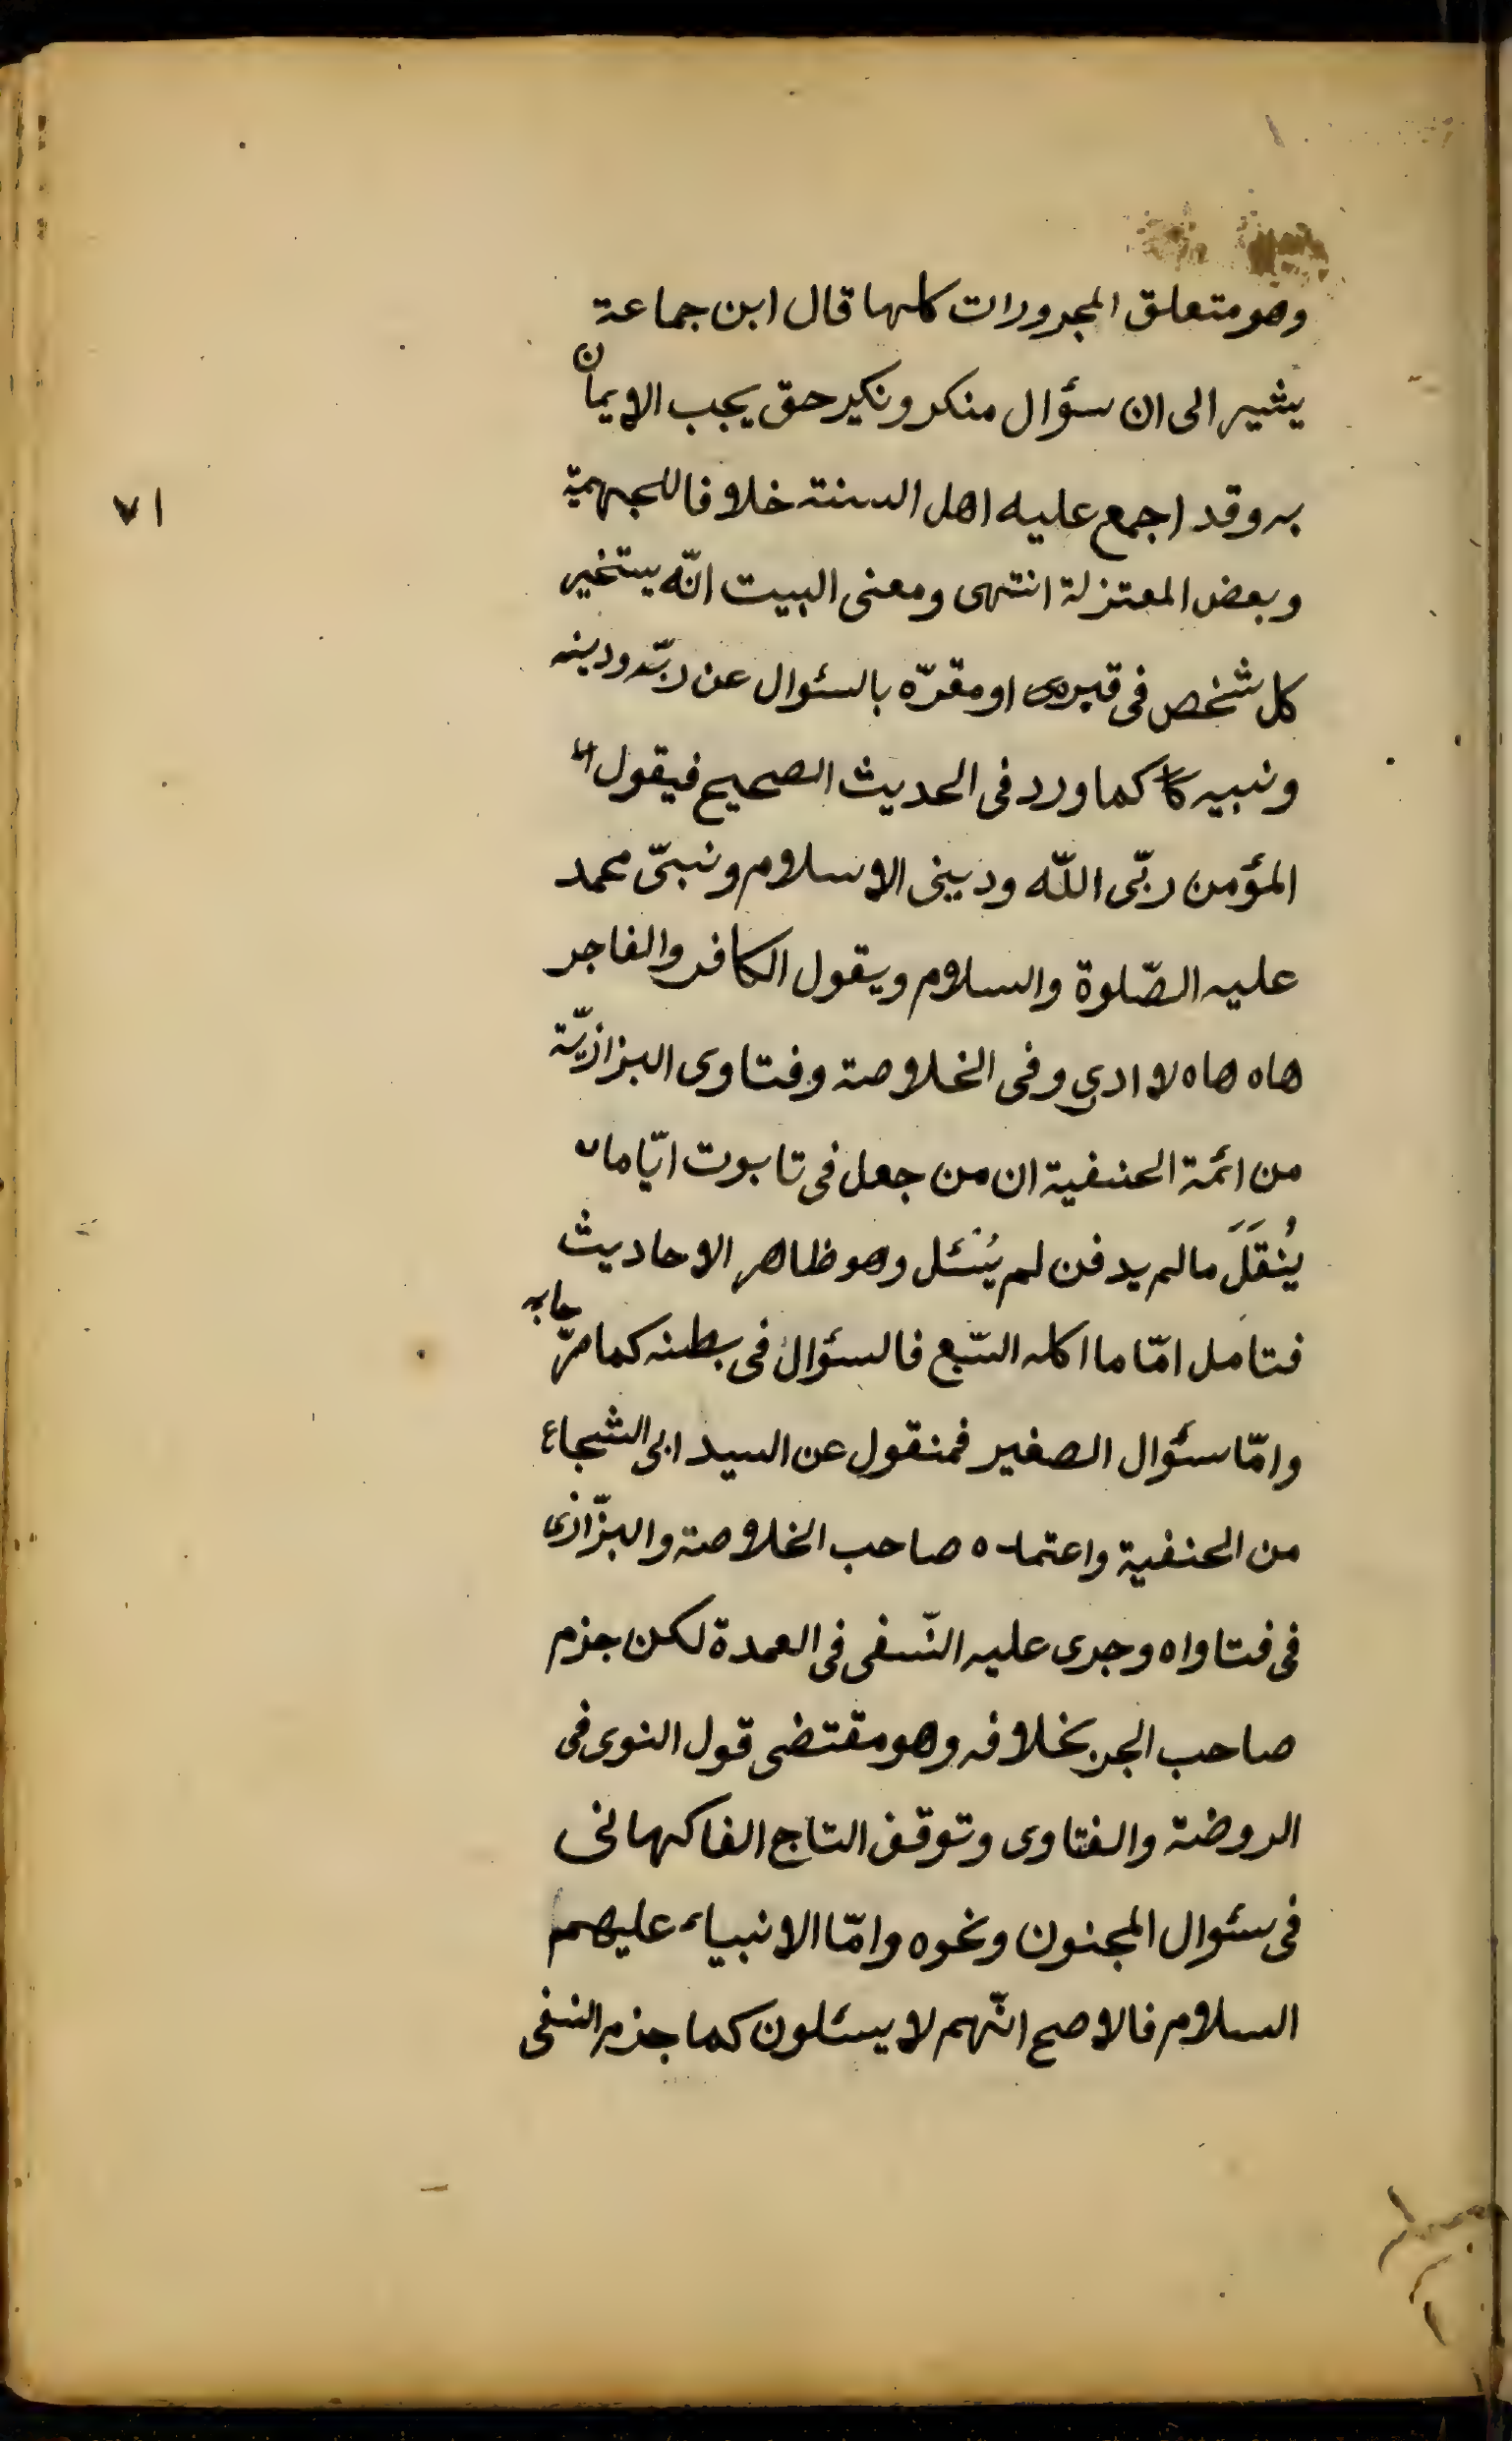 وهو متعلق المجرورات كلها قال ابن جماعة
يشير الى ان سؤال منكر ونكير حق يجب الايمان
به وقد اجمع عليه اهل السنة خلافا للجهمية
وبعض المعتزلة انتهى ومعنى البيت انّه يستخبر
كل شخص فى قبره او مقرّه بالسئوال عن ربّه ودينه
ونبيه كما ورد فى الحديث الصحيح فيقول
المؤمن ربّى اللّه ودينى الاسلام ونبىّ محمد
عليه الصّلوة والسلام ويقول الكافر والفاجر
هاه هاه لا ادرى وفى الخلاصة وفتاوى البزازيّة
من ائمة الحنفية ان من جعل فى تابوت ايّاما
يُنقَلَ مالم يدفن لم يُسئل وهو ظاهر الاحاديث
فتامل امّا ما اكله السّبع فالسئوال فى بطنه كما مرّ
وامّا سئوال الصغير فمنقول عن السيد ابى الشجاع
من الحنفية واعتماده صاحب الخلاصة والبزّازى
فى فتاواه وجرى عليه النّسفى فى العمدة لكن جزم
صاحب بخلافه وهو مقتضى قول النوى فى
الروضة والفتاوى وتوقف التاج الفاكهانى
فى سئوال المجنون ونحوه وامّا الانبياء عليهم
السلام فالاصح انّهم لا يسئلون كما جزم النسفى
٧١